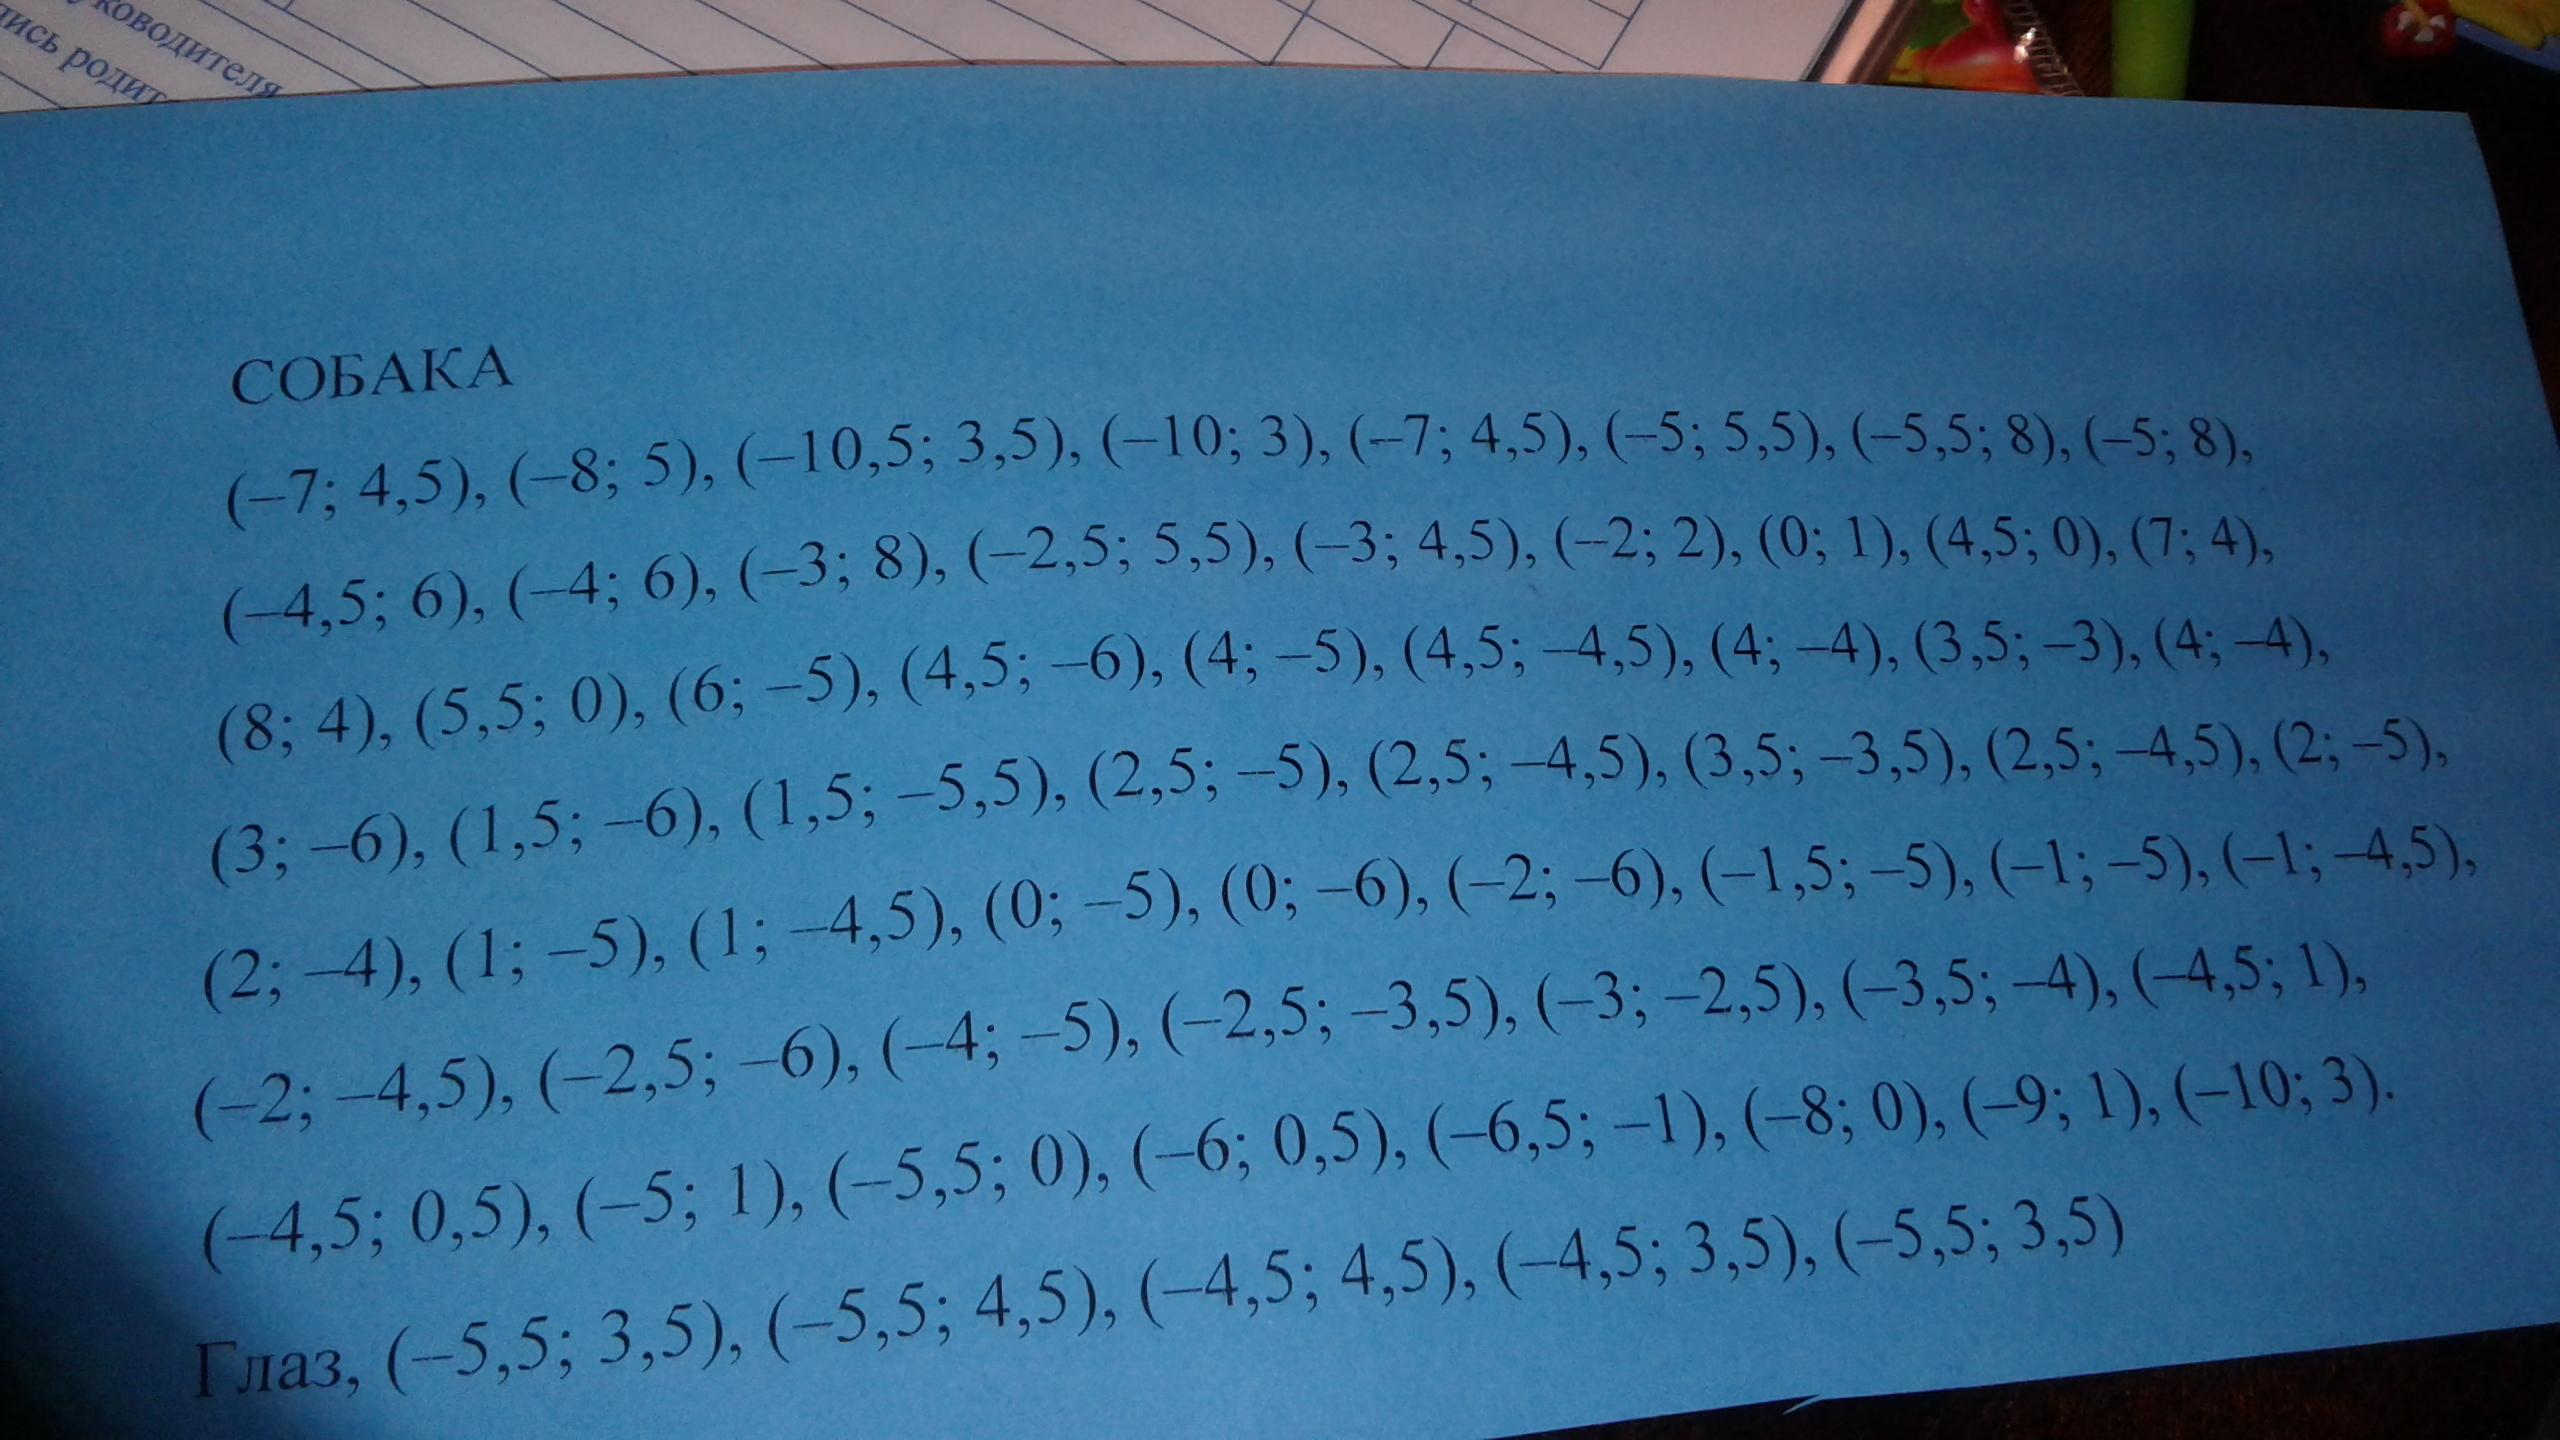 уководителя
пись родит
СОБАКА
(–7; 4,5), (–8; 5), (–10,5; 3,5), (–10; 3), (–7; 4,5), (–5; 5,5), (–5,5; 8), (–5; 8),
(–4,5; 6), (–4; 6), (–3; 8), (–2,5; 5,5), (–3; 4,5), (–2; 2), (0; 1), (4,5; 0), (7; 4),
(8; 4), (5,5; 0), (6; –5), (4,5; –6), (4; –5), (4,5; –4,5), (4; –4), (3,5; –3), (4; –4),
(3; –6), (1,5; –6), (1,5; –5,5), (2,5; –5), (2,5; –4,5), (3,5; –3,5), (2,5; –4,5), (2; –5),
(2; –4), (1; –5), (1; –4,5), (0; –5), (0; –6), (–2; –6), (–1,5; –5), (–1; –5), (–1; –4,5),
(–2; –4,5), (–2,5; –6), (–4; –5), (–2,5; –3,5), (–3; –2,5), (–3,5; –4), (–4,5; 1),
(–4,5; 0,5), (–5; 1), (–5,5; 0), (–6; 0,5), (–6,5; –1), (–8; 0), (–9; 1), (–10; 3).
Глаз, (–5,5; 3,5), (–5,5; 4,5), (–4,5; 4,5), (–4,5; 3,5), (–5,5; 3,5)